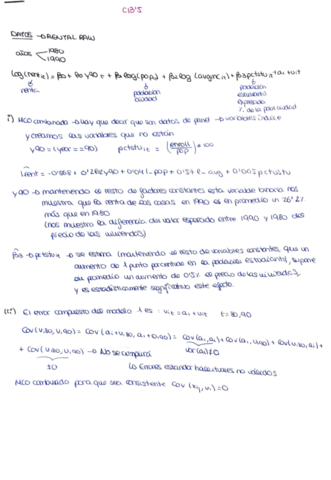 C13'5
DATOS → RENTAL.RAW
años 1980
1990
log(rent_it) = β0 + δ0 y90t + β1 log(pop_it) + β2 log(avginc_it) + β3 pctstu_it + ai + uit
renta población ciudad población estudiantil expresado % de la pobl ciudad
i) MCO combinado → hay que decir que son datos de panel → variables indice
y creamos las variables que no están
y90 = (year == 90) pctstu_it = (enroll / pop) * 100
y90 → manteniendo el resto de factores constantes esta variable binaria nos
muestra que la renta de las casas en 1990 es en promedio un 26'2%
más que en 1980
(nos muestra la diferencia del valor esperado entre 1990 y 1980 del
precio de las viviendas)
β3 → pctstu → se estima (manteniendo el resto de variables constantes, que un
aumento de 1 punto porcentual en la población estudiantil, supone
en promedio un aumento de 0'5% el precio de las viviendas),
y es estadísticamente significativo este efecto.
ii) El error compuesto del modelo 1 es: vit = ai + uit t = 80, 90
Cov(v80, v90) = Cov(ai + u80, ai + u90) = Cov(ai, ai) + Cov(ai, u90) + Cov(u80, ai) +
+ Cov(u80, u90) → No se cumplirá var(ai) ≠ 0
≠0 Errores estandar habituales no validos
MCO combinado para que sea consistente Cov(xj, vi) = 0